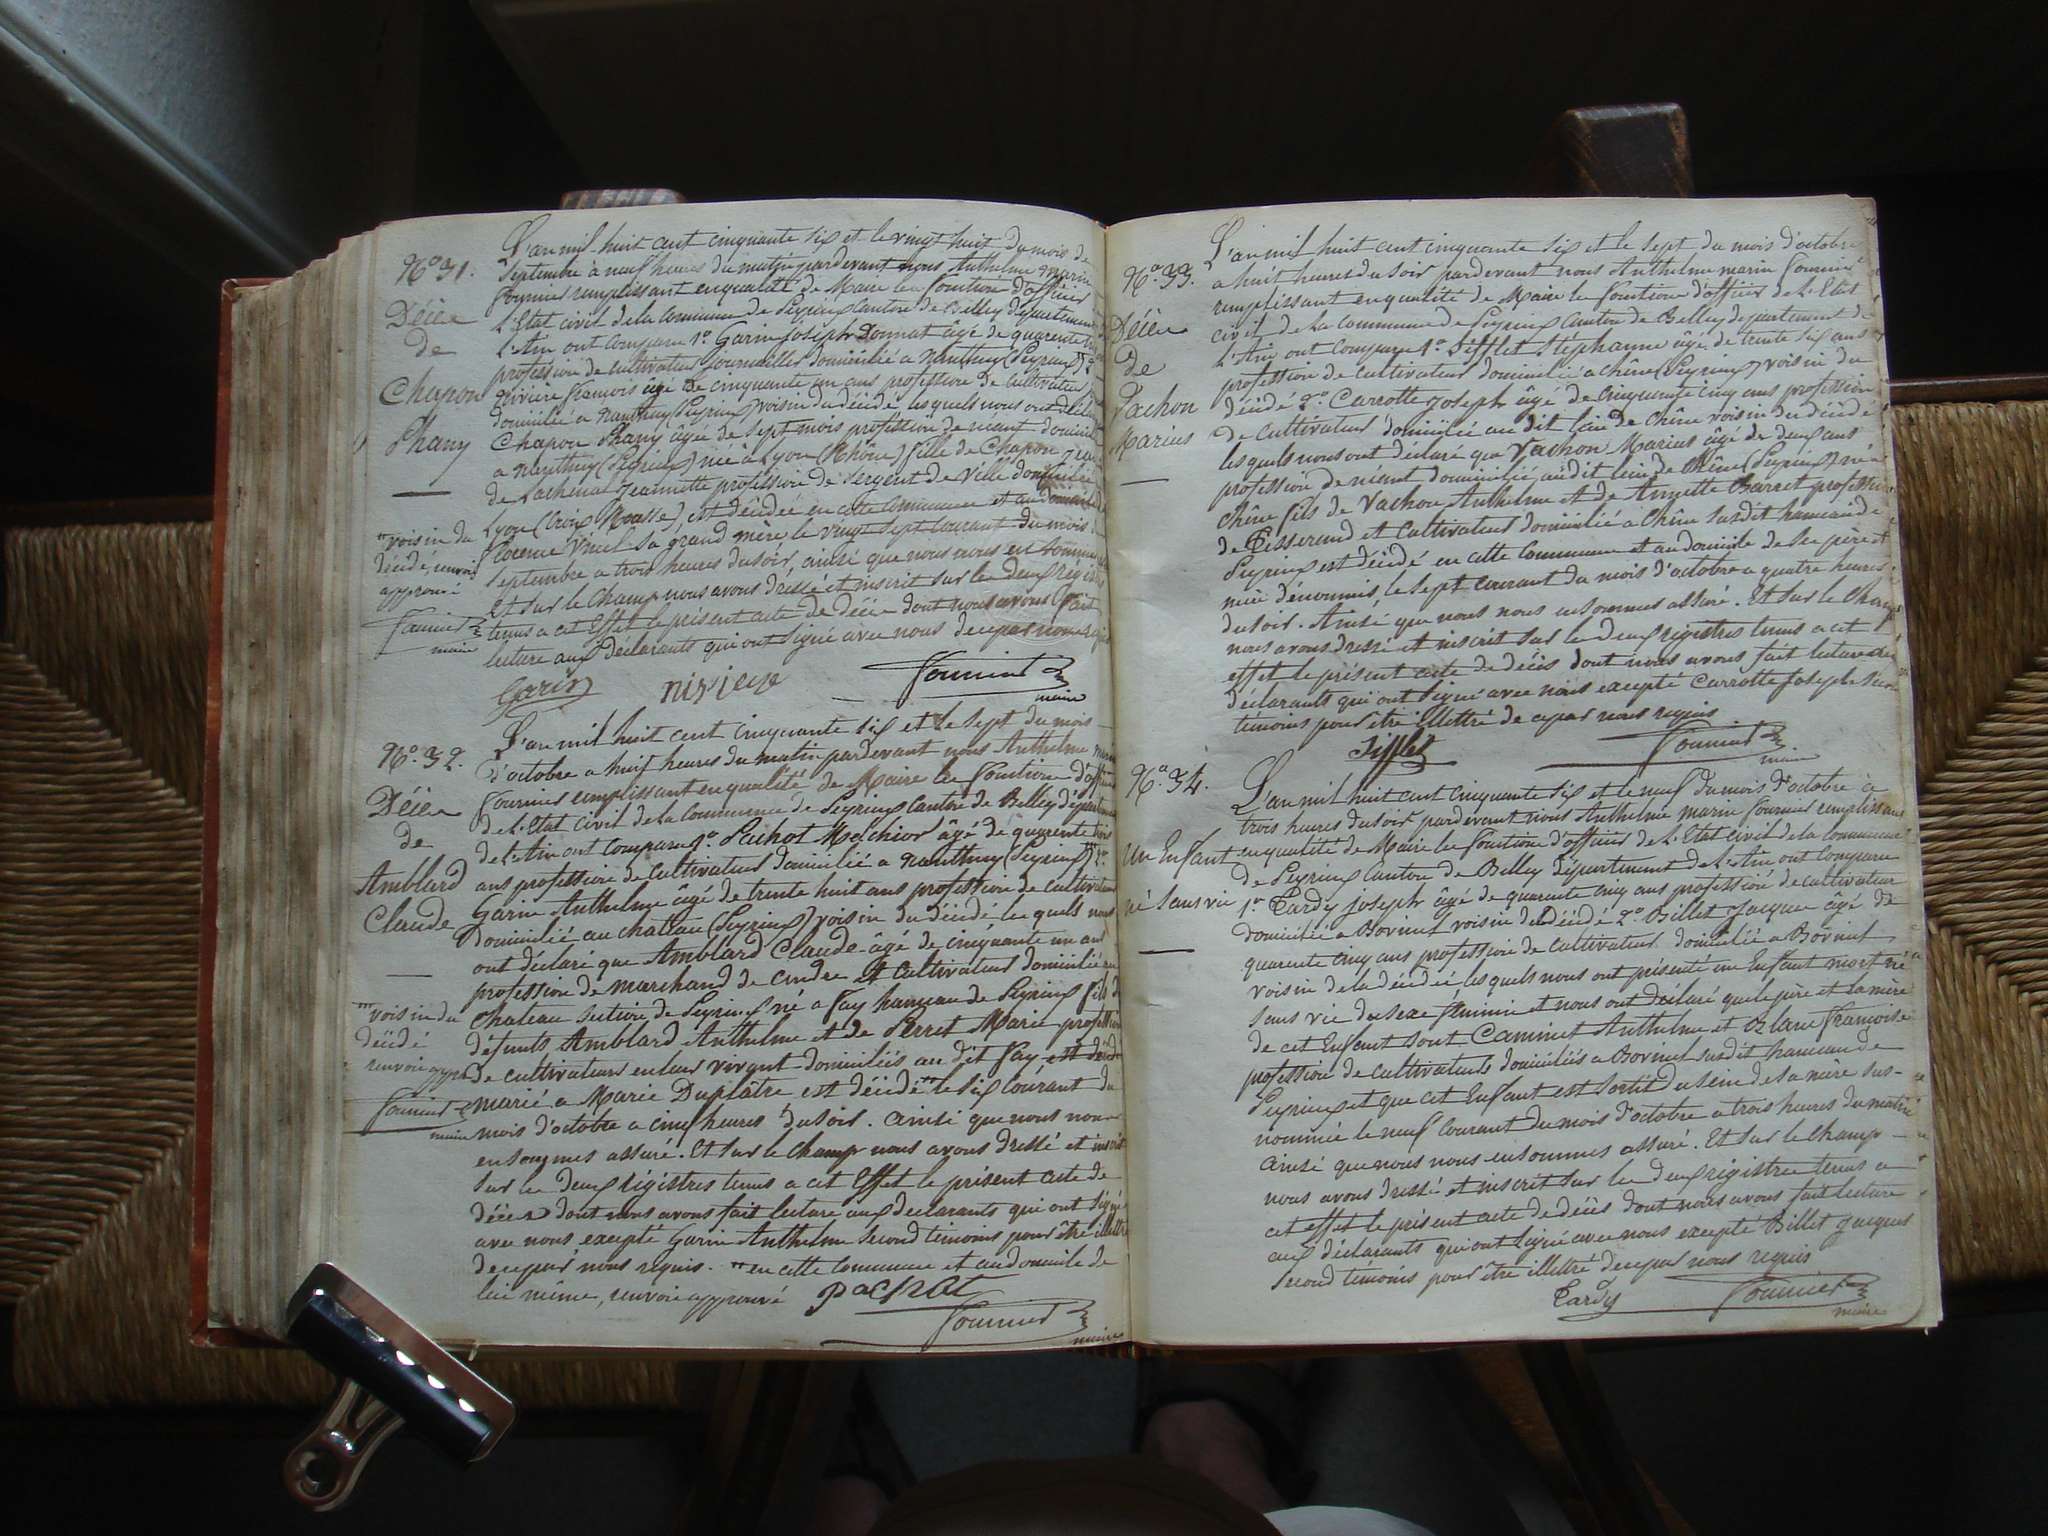 N° 31.
Décès
de
Chapon
Phany
L'an mil huit cent cinquante six et le vingt huit du mois de
Septembre à neuf heures du matin pardevant nous Anthelme marin
Fournier remplissant en qualité de Maire les fonctions d'officier
L'Etat civil de la Commune de Peyrieux Canton de Belley département
L'Ain ont comparu 1° Garin Joseph Donnat âgé de quarente
profession de cultivateur journallier domicilié a nanthuy (Peyrieux)
rivière françois âgé de cinquante un ans profession de cultivateur
domicilié a nanthuy (Peyrieux) voisin du décédé lesquels nous ont déclaré
Chapon Phany âgée de sept mois profession de néant domiciliée
a nanthuy (Peyrieux) née à Lyon (Rhône) fille de Chapon
de Jeannette profession de sergent de ville domicilié
Lyon (Croix Rousse), est décédée en cette commune et au domicile de
sa grand mère, le vingt sept courant du mois
Septembre a trois heures du soir, ainsi que nous nous en sommes
Et sur le champ nous avons dressé et inscrit sur les deux régistres
tenus a cet Effet le présent acte de décès dont nous avons fait
lecture aux déclarants qui ont signé avec nous de ce par nous requis
voisin du
décédé, renvoi
approuvé
Fournier
maire
Garin Fournier
maire
N° 32.
Décès
de
Amblard
Claude
L'an mil huit cent cinquante six et le sept du mois
d'octobre a huit heures du matin pardevant nous Anthelme marin
Fournier remplissant en qualité de Maire les fonctions d'officier
de L'Etat civil de la Commune de Peyrieux Canton de Belley département
de L'Ain ont comparu 1° Pachot Melchior âgé de quarente trois
ans profession de cultivateur domicilié a nanthuy (Peyrieux) 2°
Garin Anthelme âgé de trente huit ans profession de cultivateur
domicilié au chateau (Peyrieux) voisin du décédé lesquels nous
ont déclaré que Amblard Claude âgé de cinquante un ans
profession de marchand de cendre et cultivateur domicilié au
chateau section de Peyrieux né a Fay hameau de Peyrieux fils de
défunts Amblard Anthelme et de Perret Marie profession
de cultivateurs en leur vivant domiciliés au dit Fay est décédé
marié a Marie Duplâtre est décédé le six courant du
mois d'octobre a cinq heures du soir. ainsi que nous nous
en sommes assuré. Et sur le champ nous avons dressé et inscrit
sur les deux régistres tenus a cet Effet le présent acte de
décès dont nous avons fait lecture aux déclarants qui ont signé
avec nous excepté Garin Anthelme second témoins pour être illettré
de ce par nous réquis. en cette Commune et au domicile de
lui même, renvoi approuvé
voisin du
décédé
renvoi appr
Fournier
maire
Pachot
Fournier
maire
N° 33.
Décès
de
Vachon
Marius
L'an mil huit cent cinquante six et le sept du mois d'octobre
a huit heures du soir pardevant nous Anthelme marin Fournier
remplissant en qualité de Maire les fonctions d'officier de L'Etat
civil de la commune de Peyrieux Canton de Belley département de
L'Ain ont comparu 1° Sifflet Stéphanne âgé de trente six ans
profession de cultivateur domicilié a chêne (Peyrieux) voisin du
décédé 2° Carrotte Joseph âgé de cinquante cinq ans profession
de cultivateur domicilié au dit lieu de Chêne voisin du décédé
lesquels nous ont déclaré que Vachon Marius âgé de deux ans
profession de néant domicilié au dit lieu de Chêne (Peyrieux) né a
chêne fils de Vachon Anthelme et de Anzette Barret profession
de Tisserand et cultivateur domicilié a Chêne susdit hameau de
Peyrieux est décédé en cette Commune et au domicile de ses père et
mère dénommés, le sept courant du mois d'octobre a quatre heures
du soir. Ainsi que nous nous en sommes assuré. Et sur le champ
nous avons dressé et inscrit sur les deux régistres tenus a cet
effet le présent acte de décès dont nous avons fait lecture aux
déclarants qui ont signé avec nous excepté Carrotte Joseph second
témoins pour être illettré de ce par nous requis
Sifflet Fournier
maire
N° 34.
Un Enfant
né sans vie
L'an mil huit cent cinquante six et le neuf du mois d'octobre à
trois heures du soir pardevant nous Anthelme marin Fournier remplissant
en qualité de Maire les fonctions d'officier de L'Etat civil de la Commune
de Peyrieux Canton de Belley département de L'Ain ont comparu
1° Tardy Joseph âgé de quarente cinq ans profession de cultivateur
domicilié a Bovinel voisin du décédé 2° Billet Jacques âgé de
quarente cinq ans profession de cultivateur domicilié a Bovinel
voisin de la décédée lesquels nous ont présenté un Enfant mort né
sans vie du sexe féminin et nous ont déclaré que le père et la mère
de cet Enfant sont Caminet Anthelme et françoise
profession de cultivateurs domiciliés a Bovinel susdit hameau de
Peyrieux et que cet Enfant est sortit du sein de sa mère sus-
nommée le neuf courant du mois d'octobre a trois heures du matin
Ainsi que nous nous en sommes assuré. Et sur le champ
nous avons dressé et inscrit sur les deux régistres tenus a
cet effet le présent acte de décès dont nous avons fait lecture
aux déclarants qui ont signé avec nous excepté Billet Jacques
second témoins pour être illettré de ce par nous requis
Tardy Fournier
maire